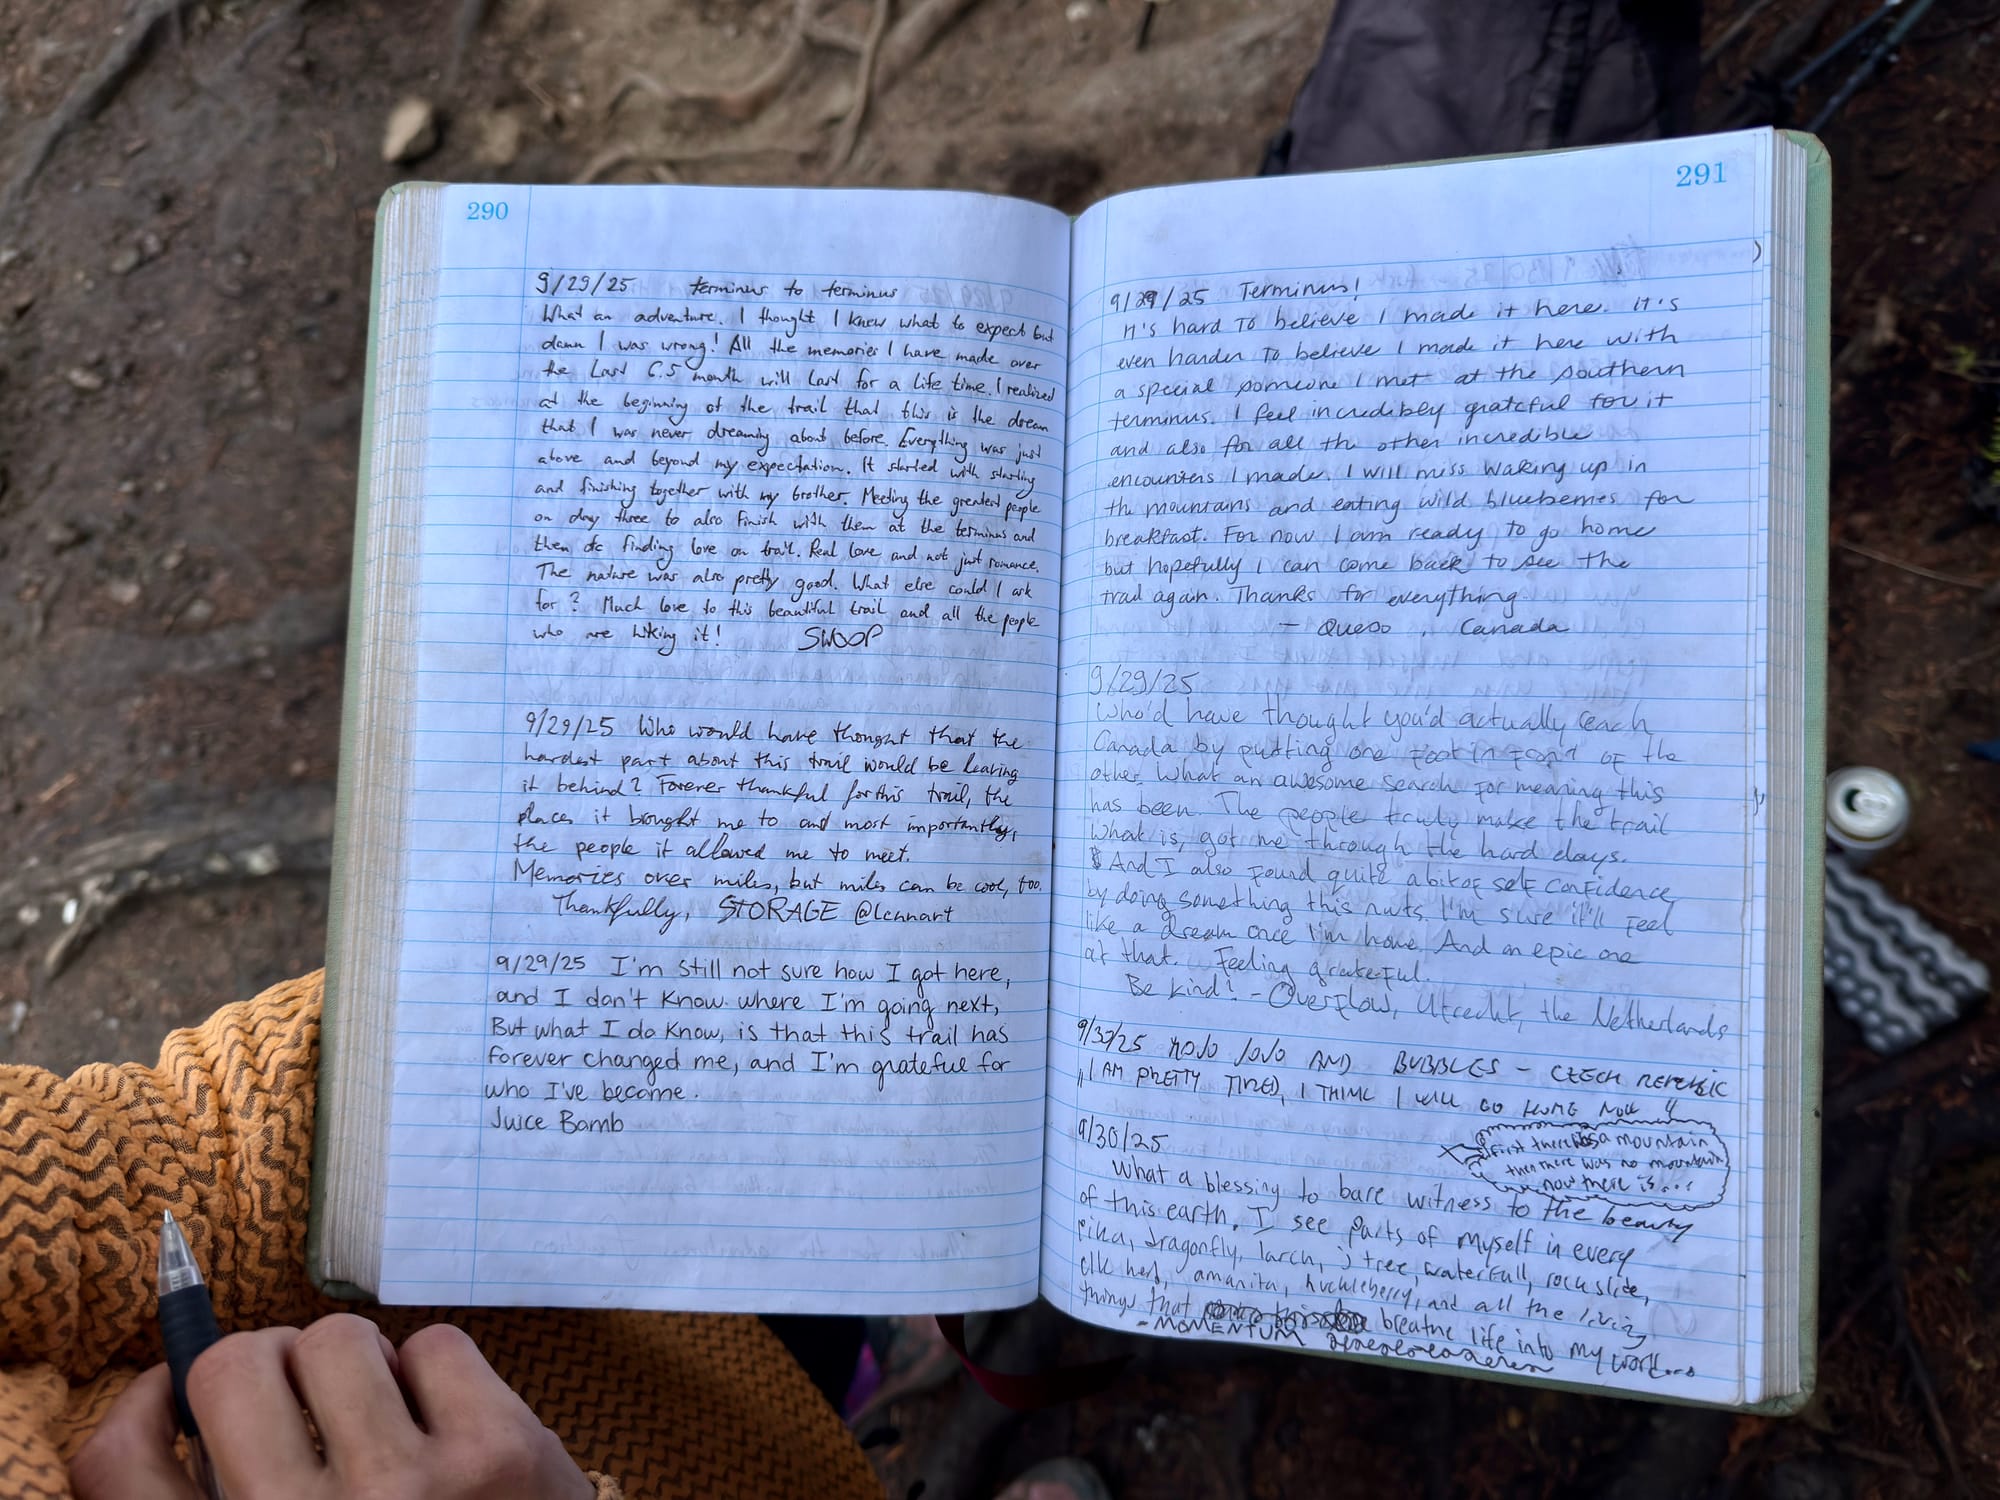 290
9/29/25 terminus to terminus
What an adventure. I thought I knew what to expect but
damn I was wrong! All the memories I have made over
the last 6.5 month will last for a life time. I realized
at the beginning of the trail that this is the dream
that I was never dreaming about before. Everything was just
above and beyond my expectation. It started with starting
and finishing together with my brother. Meeting the greatest people
on day three to also finish with them at the terminus and
then ofc finding love on trail. Real love and not just romance.
The nature was also pretty good. What else could I ask
for? Much love to this beautiful trail and all the people
who are hiking it! SWOOP
9/29/25 Who would have thought that the
hardest part about this trail would be leaving
it behind? Forever thankful for this trail, the
places it brought me to and most importantly,
the people it allowed me to meet.
Memories over miles, but miles can be cool, too.
Thankfully, STORAGE @lennart
9/29/25 I'm still not sure how I got here,
and I don't know where I'm going next,
But what I do know, is that this trail has
forever changed me, and I'm grateful for
who I've become.
Juice Bamb
291
9/29/25 Terminus!
It's hard to believe I made it here. It's
even harder to believe I made it here with
a special someone I met at the southern
terminus. I feel incredibly grateful for it
and also for all the other incredible
encounters I made. I will miss waking up in
the mountains and eating wild blueberries for
breakfast. For now I am ready to go home
but hopefully I can come back to see the
trail again. Thanks for everything.
- Queso, Canada
9/29/25
Who'd have thought you'd actually reach
Canada by putting one foot in front of the
other. What an awesome search for meaning this
has been. The people truly make the trail
what is, got me through the hard days.
And I also found quite a bit of self confidence
by doing something this nuts. I'm sure it'll feel
like a dream once I'm home. And an epic one
at that. Feeling grateful.
Be kind! - Overflow, Utrecht, the Netherlands
9/30/25 MOJO JOJO AND BUBBLES - CZECH REPUBLIC
"I AM PRETTY TIRED, I THINK I WILL GO HOME NOW"
9/30/25
first there was a mountain
then there was no mountain
now there is...
What a blessing to bare witness to the beauty
of this earth. I see parts of myself in every
pika, dragonfly, larch, j tree, waterfull, rock slide,
elk herd, amanita, huckleberry, and all the living
things that breathe life into my world....
- MOMENTUM